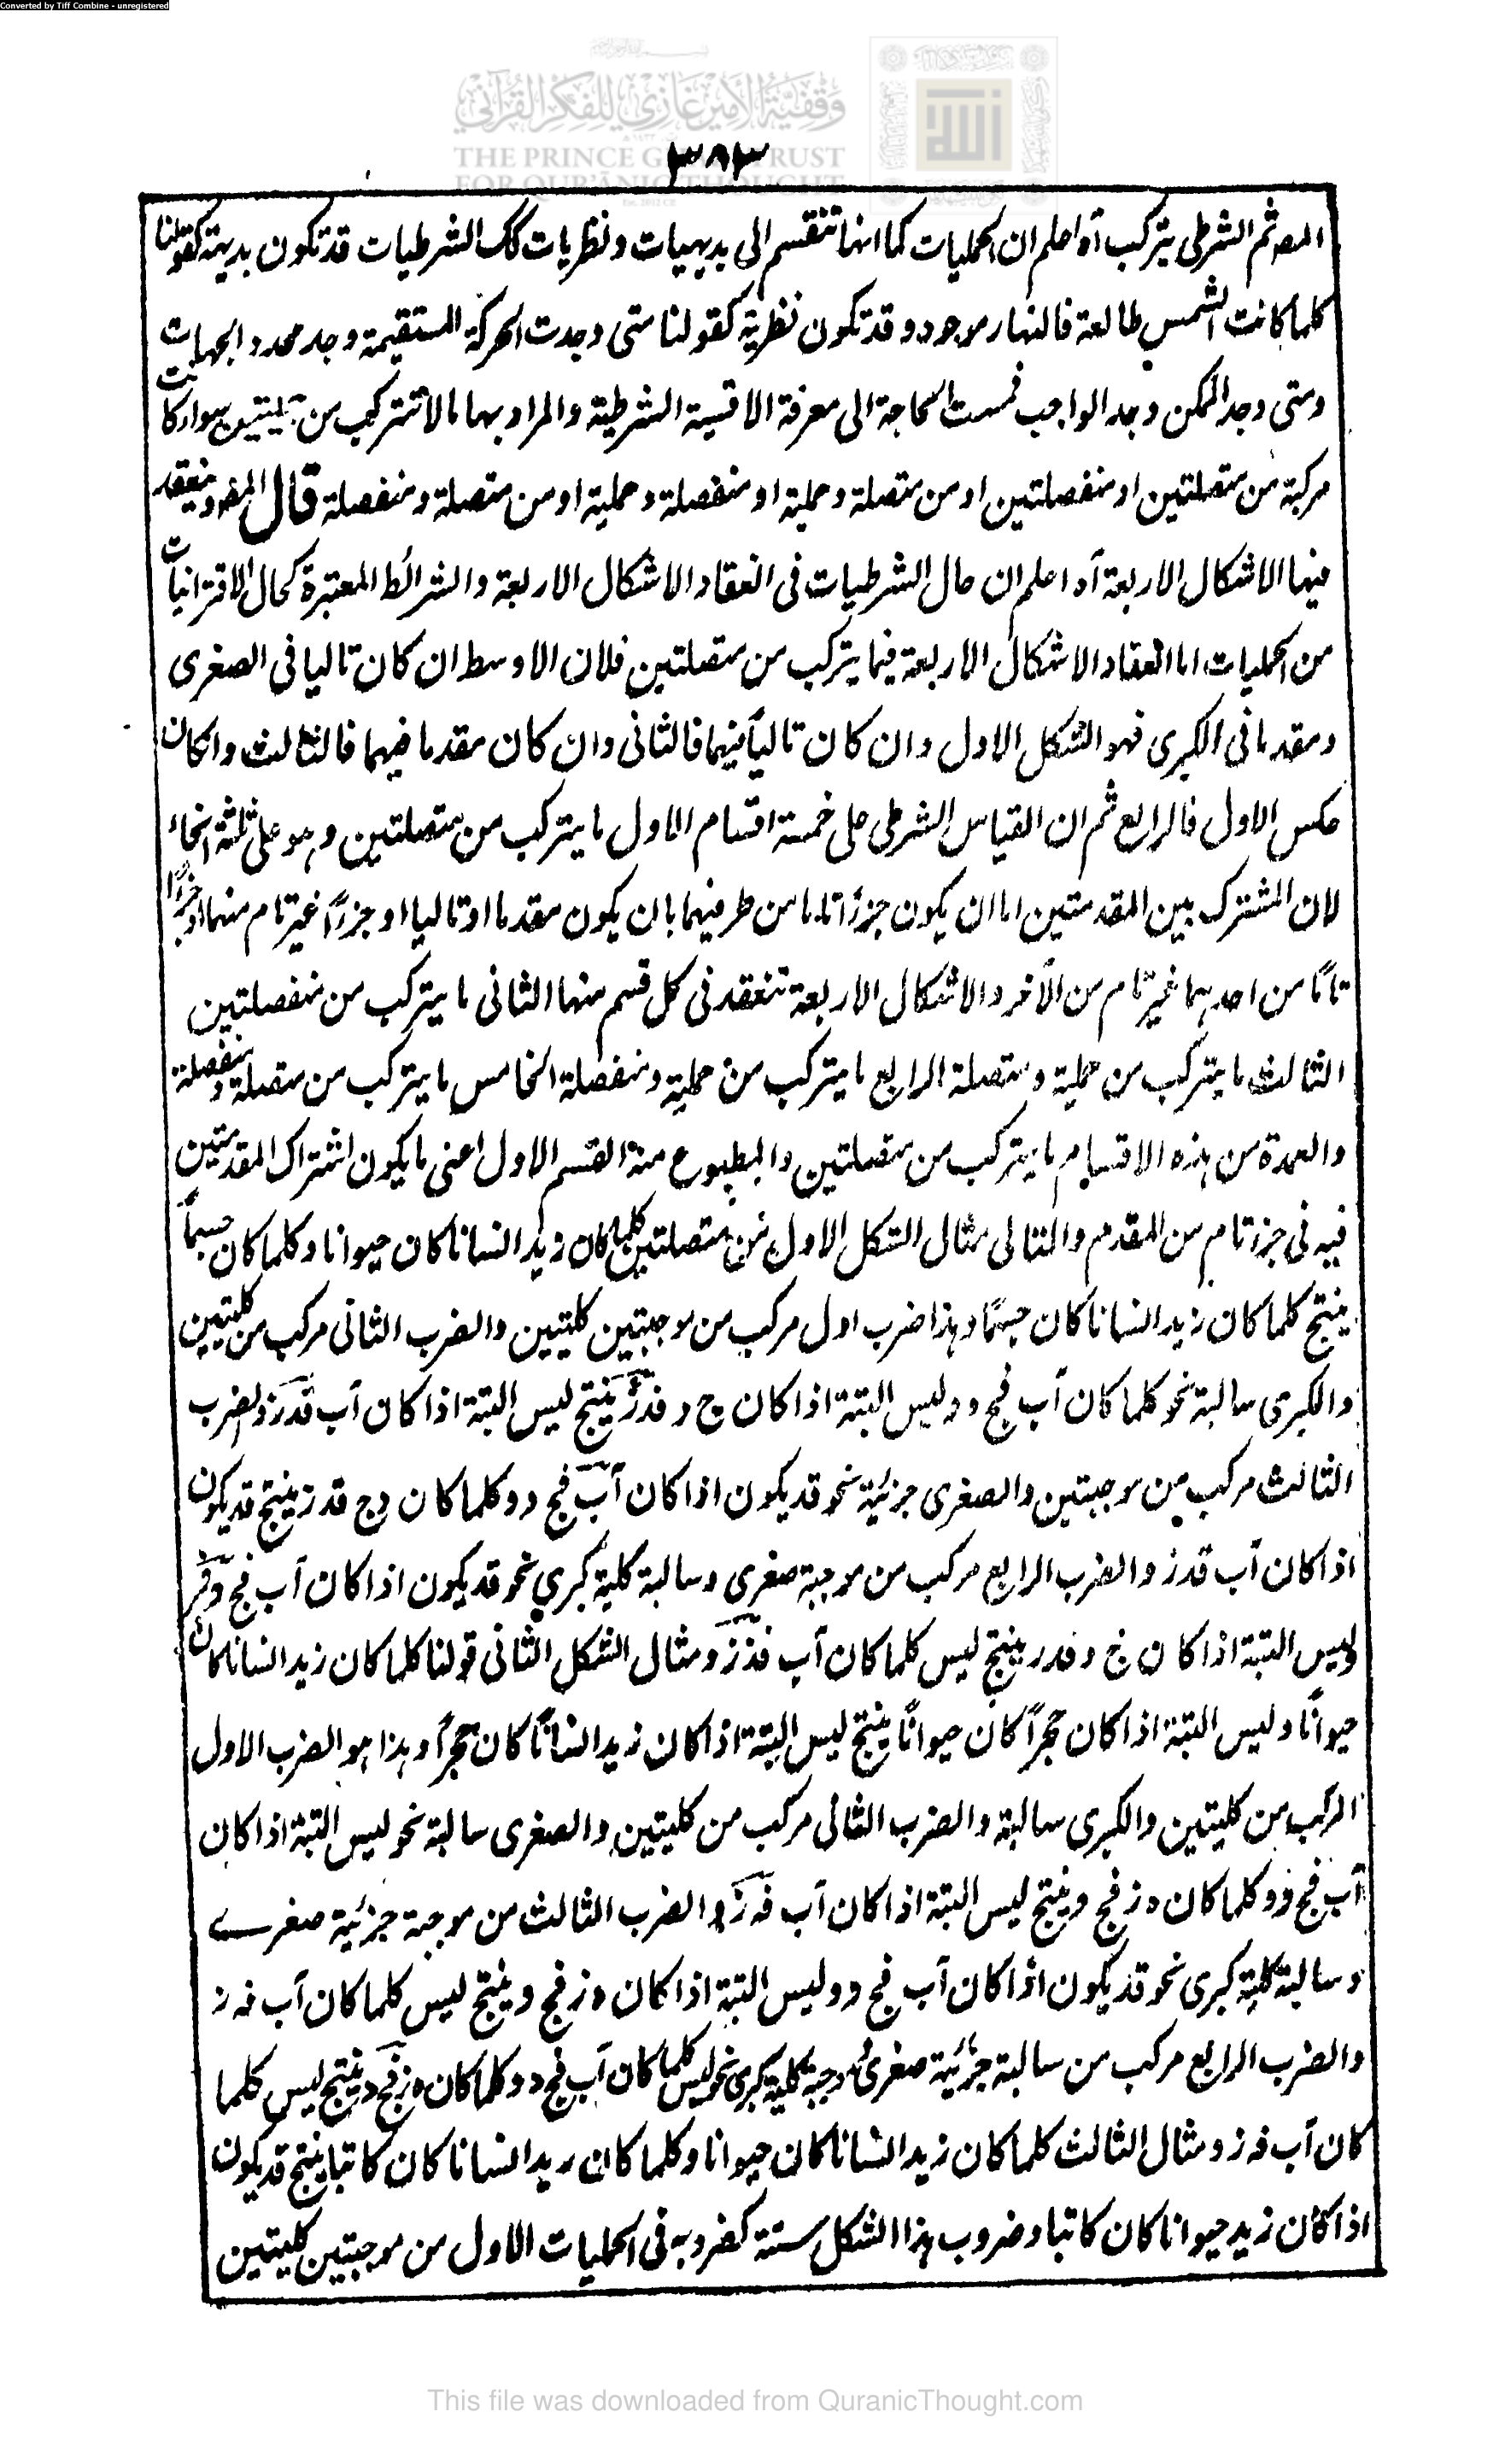 Converted by Tiff Combine - unregistered
وقفية الأمير غازي للفكر القرآني
THE PRINCE G TRUST
FOR QUR'ĀNIC THOUGHT
٣٨٣
المص ثم الشرطى يتركب آه اعلم ان الحمليات كما انها تنقسم الى بديهيات ونظريات كك الشرطيات قد تكون بديهية كقولنا
كلما كانت الشمس طالعة فالنهار موجود وقد تكون نظرية كقولنا متى وجدت الحركة المستقيمة وجد محدد الجهات
ومتى وجد الممكن وجد الواجب فمست الحاجة الى معرفة الاقيسة الشرطية والمراد بها ما لا تتركب من حمليتين سواء كانت
مركبة من متصلتين او منفصلتين او من متصلة وحملية او منفصلة وحملية او من متصلة ومنفصلة قال المصـ وينعقد
فيها الاشكال الاربعة آه اعلم ان حال الشرطيات فى انعقاد الاشكال الاربعة والشرائط المعتبرة كحال الاقترانيات
من الحمليات اما انعقاد الاشكال الاربعة فيما يتركب من متصلتين فلان الاوسط ان كان تاليا فى الصغرى
ومقدما فى الكبرى فهو الشكل الاول وان كان تالياً فيهما فالثانى وان كان مقدما فيهما فالثالث وان كان
عكس الاول فالرابع ثم ان القياس الشرطى على خمسة اقسام الاول ما يتركب من متصلتين وهو على ثلثة انحاء
لان المشترك بين المقدمتين اما ان يكون جزءًا تاما من طرفيهما بان يكون مقدما او تاليا او جزءًا غير تام منهما او جزءًا
تامًا من احدهما غير تام من الآخر والاشكال الاربعة تنعقد فى كل قسم منها الثانى ما يتركب من منفصلتين
الثالث ما يتركب من حملية ومتصلة الرابع ما يتركب من حملية ومنفصلة الخامس ما يتركب من متصلة ومنفصلة
والعمدة من هذه الاقسام ما يتركب من متصلتين والمطبوع منه القسم الاول اعنى ما يكون اشتراك المقدمتين
فيه فى جزء تام من المقدم والتالى مثال الشكل الاول من متصلتين كلما كان زيد انسانا كان حيوانا وكلما كان جسماً
ينتج كلما كان زيد انسانا كان جسمًا وهذا ضرب اول مركب من موجبتين كليتين والضرب الثانى مركب من كليتين
والكبرى سالبة نحو كلما كان آب فج د وليس البتة اذا كان ج د فدز ينتج ليس البتة اذا كان آب قدز والضرب
الثالث مركب من موجبتين والصغرى جزئية نحو قد يكون اذا كان آب فج د وكلما كان دج قد ز ينتج قد يكون
اذا كان آب قدز والضرب الرابع مركب من موجبة صغرى وسالبة كلية كبرى نحو قد يكون اذا كان آب فج
وليس البتة اذا كان ج د فدر ينتج ليس كلما كان آب فدز ومثال الشكل الثانى قولنا كلما كان زيد انسانا كان
حيوانًا وليس البتة اذا كان حجراً كان حيوانًا ينتج ليس البتة اذا كان زيد انسانًا كان حجراً وهذا هو الضرب الاول
المركب من كليتين والكبرى سالبة والضرب الثانى مركب من كليتين والصغرى سالبة نحو ليس البتة اذا كان
آب فج د وكلما كان ه ز فج د ينتج ليس البتة اذا كان آب فه ز والضرب الثالث من موجبة جزئية صغرے
وسالبة كلية كبرى نحو قد يكون اذا كان آب فج د وليس البتة اذا كان ه ز فج د ينتج ليس كلما كان آب فه ز
والضرب الرابع مركب من سالبة جزئية صغرى وموجبة كلية كبرى نحو ليس كلما كان آب فج د وكلما كان ه ز فج د ينتج ليس كلما
كان آب فه ز ومثال الثالث كلما كان زيد انسانا كان حيوانا وكلما كان زيد انسانا كان كاتبا ينتج قد يكون
اذا كان زيد حيوانا كان كاتبا وضروب هذا الشكل ستة كضروبه فى الحمليات الاول من موجبتين كليتين
This file was downloaded from QuranicThought.com